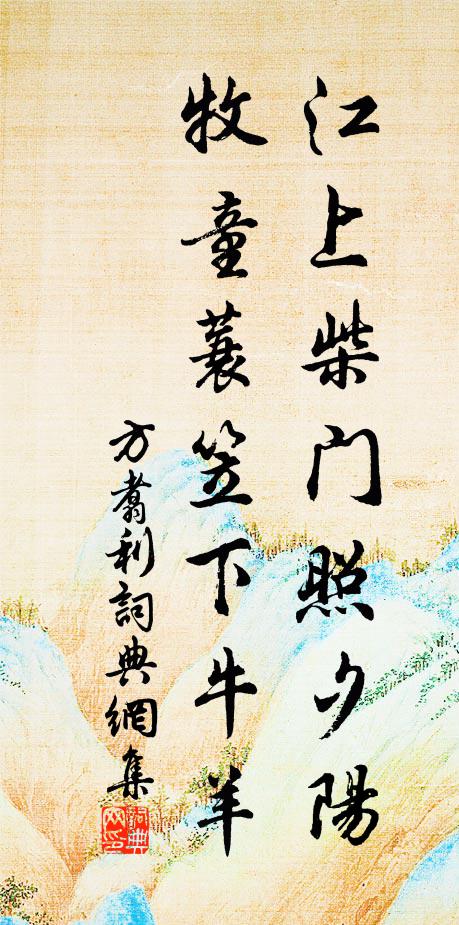 江上柴门照夕陽
牧童蓑笠下牛羊
方翥利詞典網集
詞典
网印